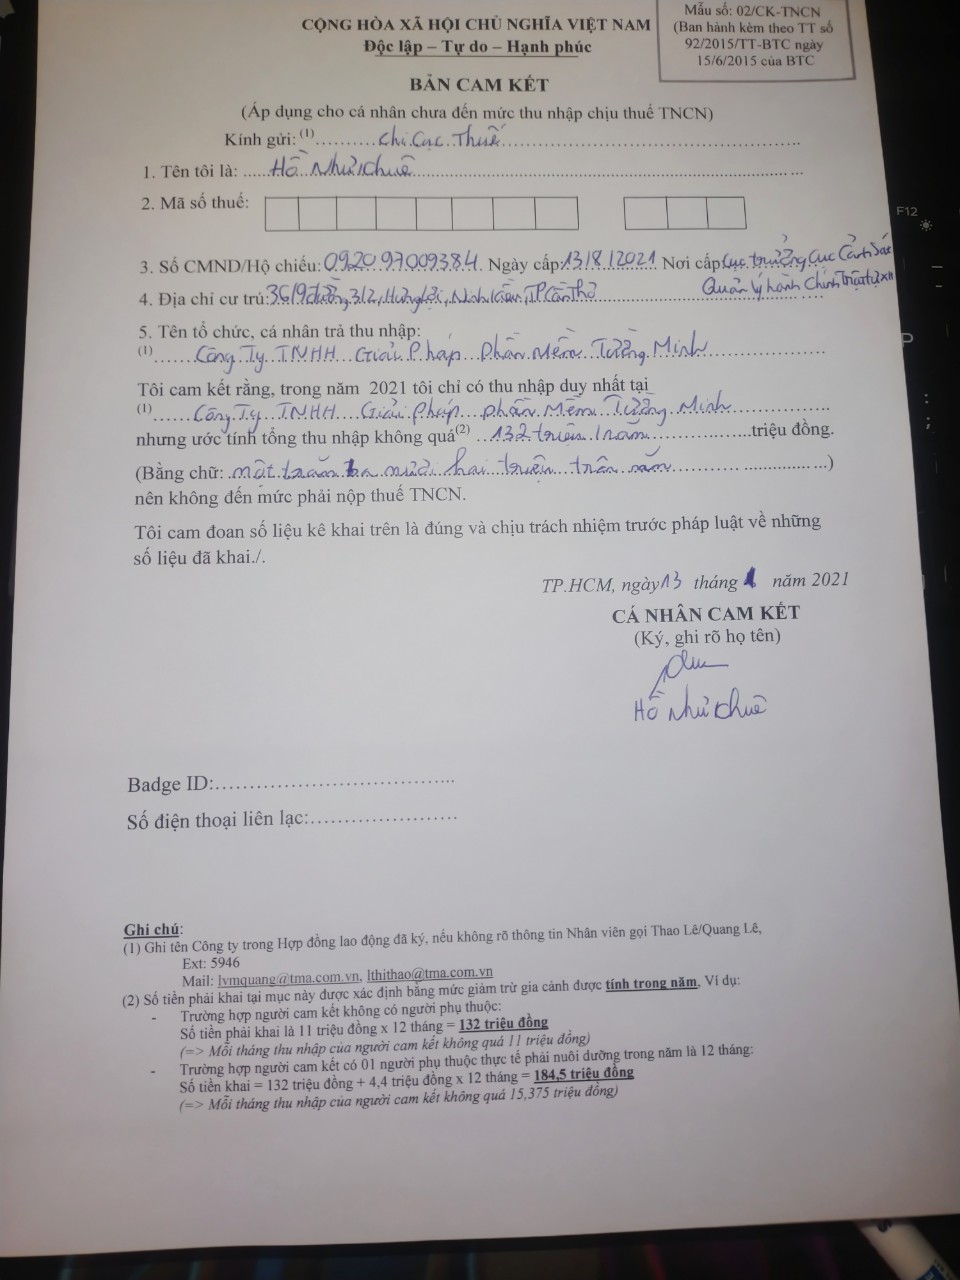 CỘNG HÒA XÃ HỘI CHỦ NGHĨA VIỆT NAM
Độc lập – Tự do – Hạnh phúc
Mẫu số: 02/CK-TNCN
(Ban hành kèm theo TT số
92/2015/TT-BTC ngày
15/6/2015 của BTC
BẢN CAM KẾT
(Áp dụng cho cá nhân chưa đến mức thu nhập chịu thuế TNCN)
Kính gửi: (1) Chi Cục Thuế
1. Tên tôi là: Hồ Như Khuê
2. Mã số thuế:
3. Số CMND/Hộ chiếu: 092097009384. Ngày cấp 13/8/2021 Nơi cấp Cục trưởng Cục Cảnh Sát
Quản lý hành Chính Trật tự XH
4. Địa chỉ cư trú: đường 3/2, Hưng Lợi, Ninh Kiều, TP Cần Thơ
5. Tên tổ chức, cá nhân trả thu nhập:
(1) Công Ty TNHH Giải Pháp Phần Mềm Tường Minh
Tôi cam kết rằng, trong năm 2021 tôi chỉ có thu nhập duy nhất tại
(1) Công Ty TNHH Giải Pháp Phần Mềm Tường Minh
nhưng ước tính tổng thu nhập không quá(2) 132 triệu / năm triệu đồng.
(Bằng chữ: một trăm ba mươi hai triệu trên năm )
nên không đến mức phải nộp thuế TNCN.
Tôi cam đoan số liệu kê khai trên là đúng và chịu trách nhiệm trước pháp luật về những
số liệu đã khai./.
TP.HCM, ngày 13 tháng năm 2021
CÁ NHÂN CAM KẾT
(Ký, ghi rõ họ tên)
Hồ Như Khuê
Badge ID:
Số điện thoại liên lạc:
Ghi chú:
(1) Ghi tên Công ty trong Hợp đồng lao động đã ký, nếu không rõ thông tin Nhân viên gọi Thao Lê/Quang Lê,
Ext: 5946
Mail: lvmquang@tma.com.vn, lthithao@tma.com.vn
(2) Số tiền phải khai tại mục này được xác định bằng mức giảm trừ gia cảnh được tính trong năm. Ví dụ:
- Trường hợp người cam kết không có người phụ thuộc:
Số tiền phải khai là 11 triệu đồng x 12 tháng = 132 triệu đồng
(=> Mỗi tháng thu nhập của người cam kết không quá 11 triệu đồng)
- Trường hợp người cam kết có 01 người phụ thuộc thực tế phải nuôi dưỡng trong năm là 12 tháng:
Số tiền khai = 132 triệu đồng + 4,4 triệu đồng x 12 tháng = 184,5 triệu đồng
(=> Mỗi tháng thu nhập của người cam kết không quá 15,375 triệu đồng)
F12
P